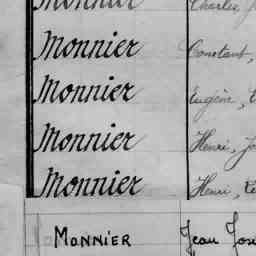 Monnier Charles
Monnier Constant,
Monnier Eugène,
Monnier Henri,
Monnier Henri,
MONNIER Jean